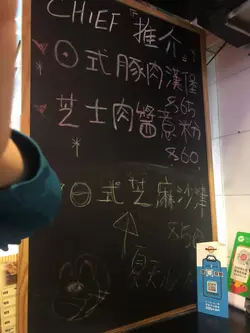 CHIEF "推介"
日式豚肉漢堡
$65
芝士肉醬意粉
$60
日式芝麻沙律
$50
夏天